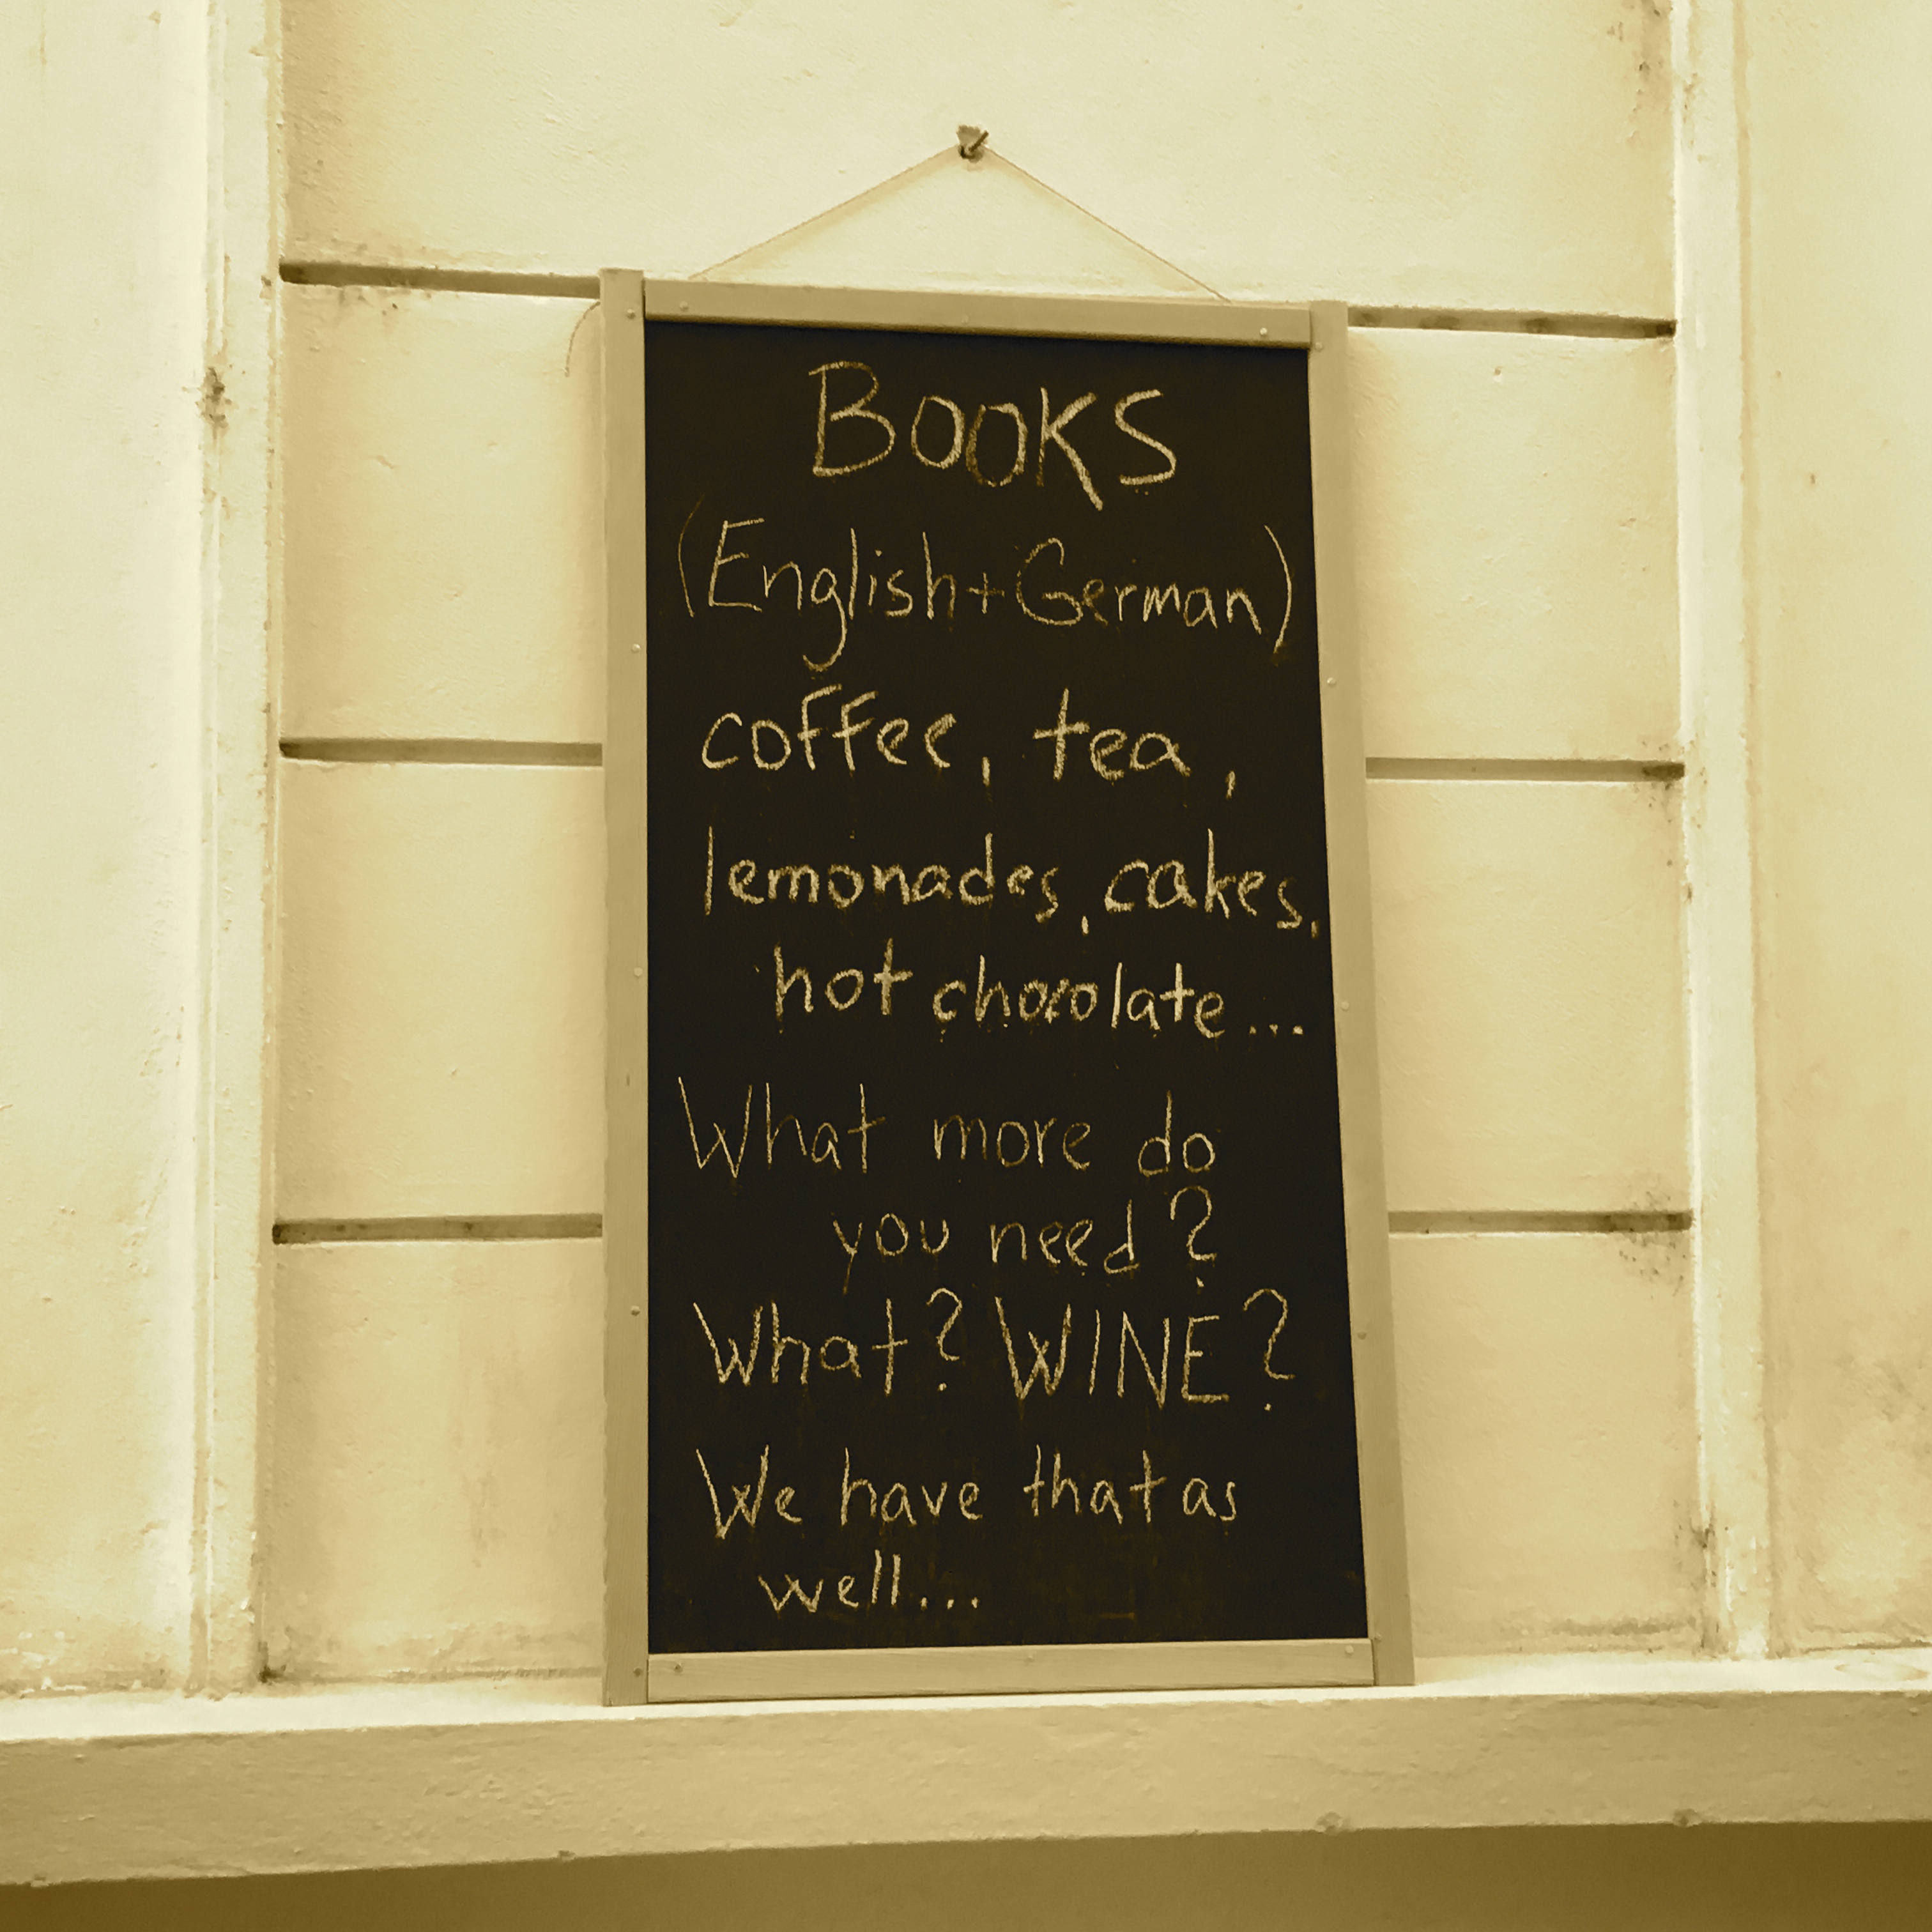 BOOKS
(English+German)
coffee, tea,
lemonades, cakes,
hot chocolate...
What more do
you need?
What? WINE?
We have that as
well...